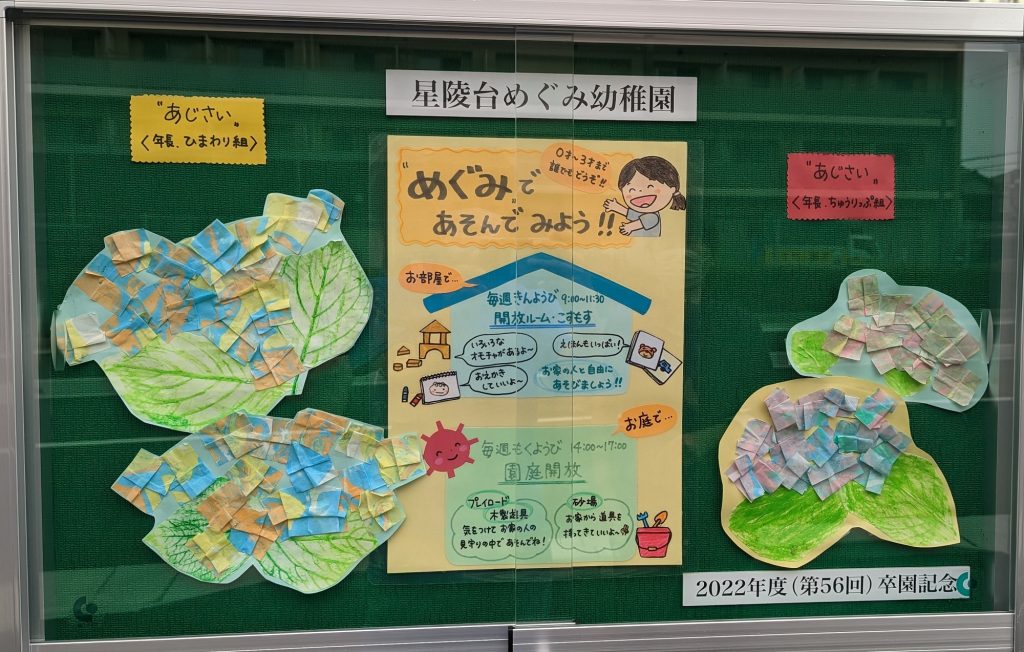 星陵台めぐみ幼稚園
"あじさい"
〈年長.ひまわり組〉
"めぐみ"で
あそんでみよう!!
0才〜3才まで
誰でもどうぞ!!
お部屋で…
毎週きんようび 9:00〜11:30
開放ルーム・こすもす
いろいろな
オモチャがあるよ〜
えほんもいっぱい!
おえかき
していいよ〜
お家の人と自由に
あそびましょう!!
お庭で…
毎週もくようび 14:00〜17:00
園庭開放
プレイロード
木製遊具
気をつけてお家の人の
見守りの中であそんでね!
砂場
お家から道具を
持ってきていいよ〜
"あじさい"
〈年長.ちゅうりっぷ組〉
2022年度(第56回)卒園記念